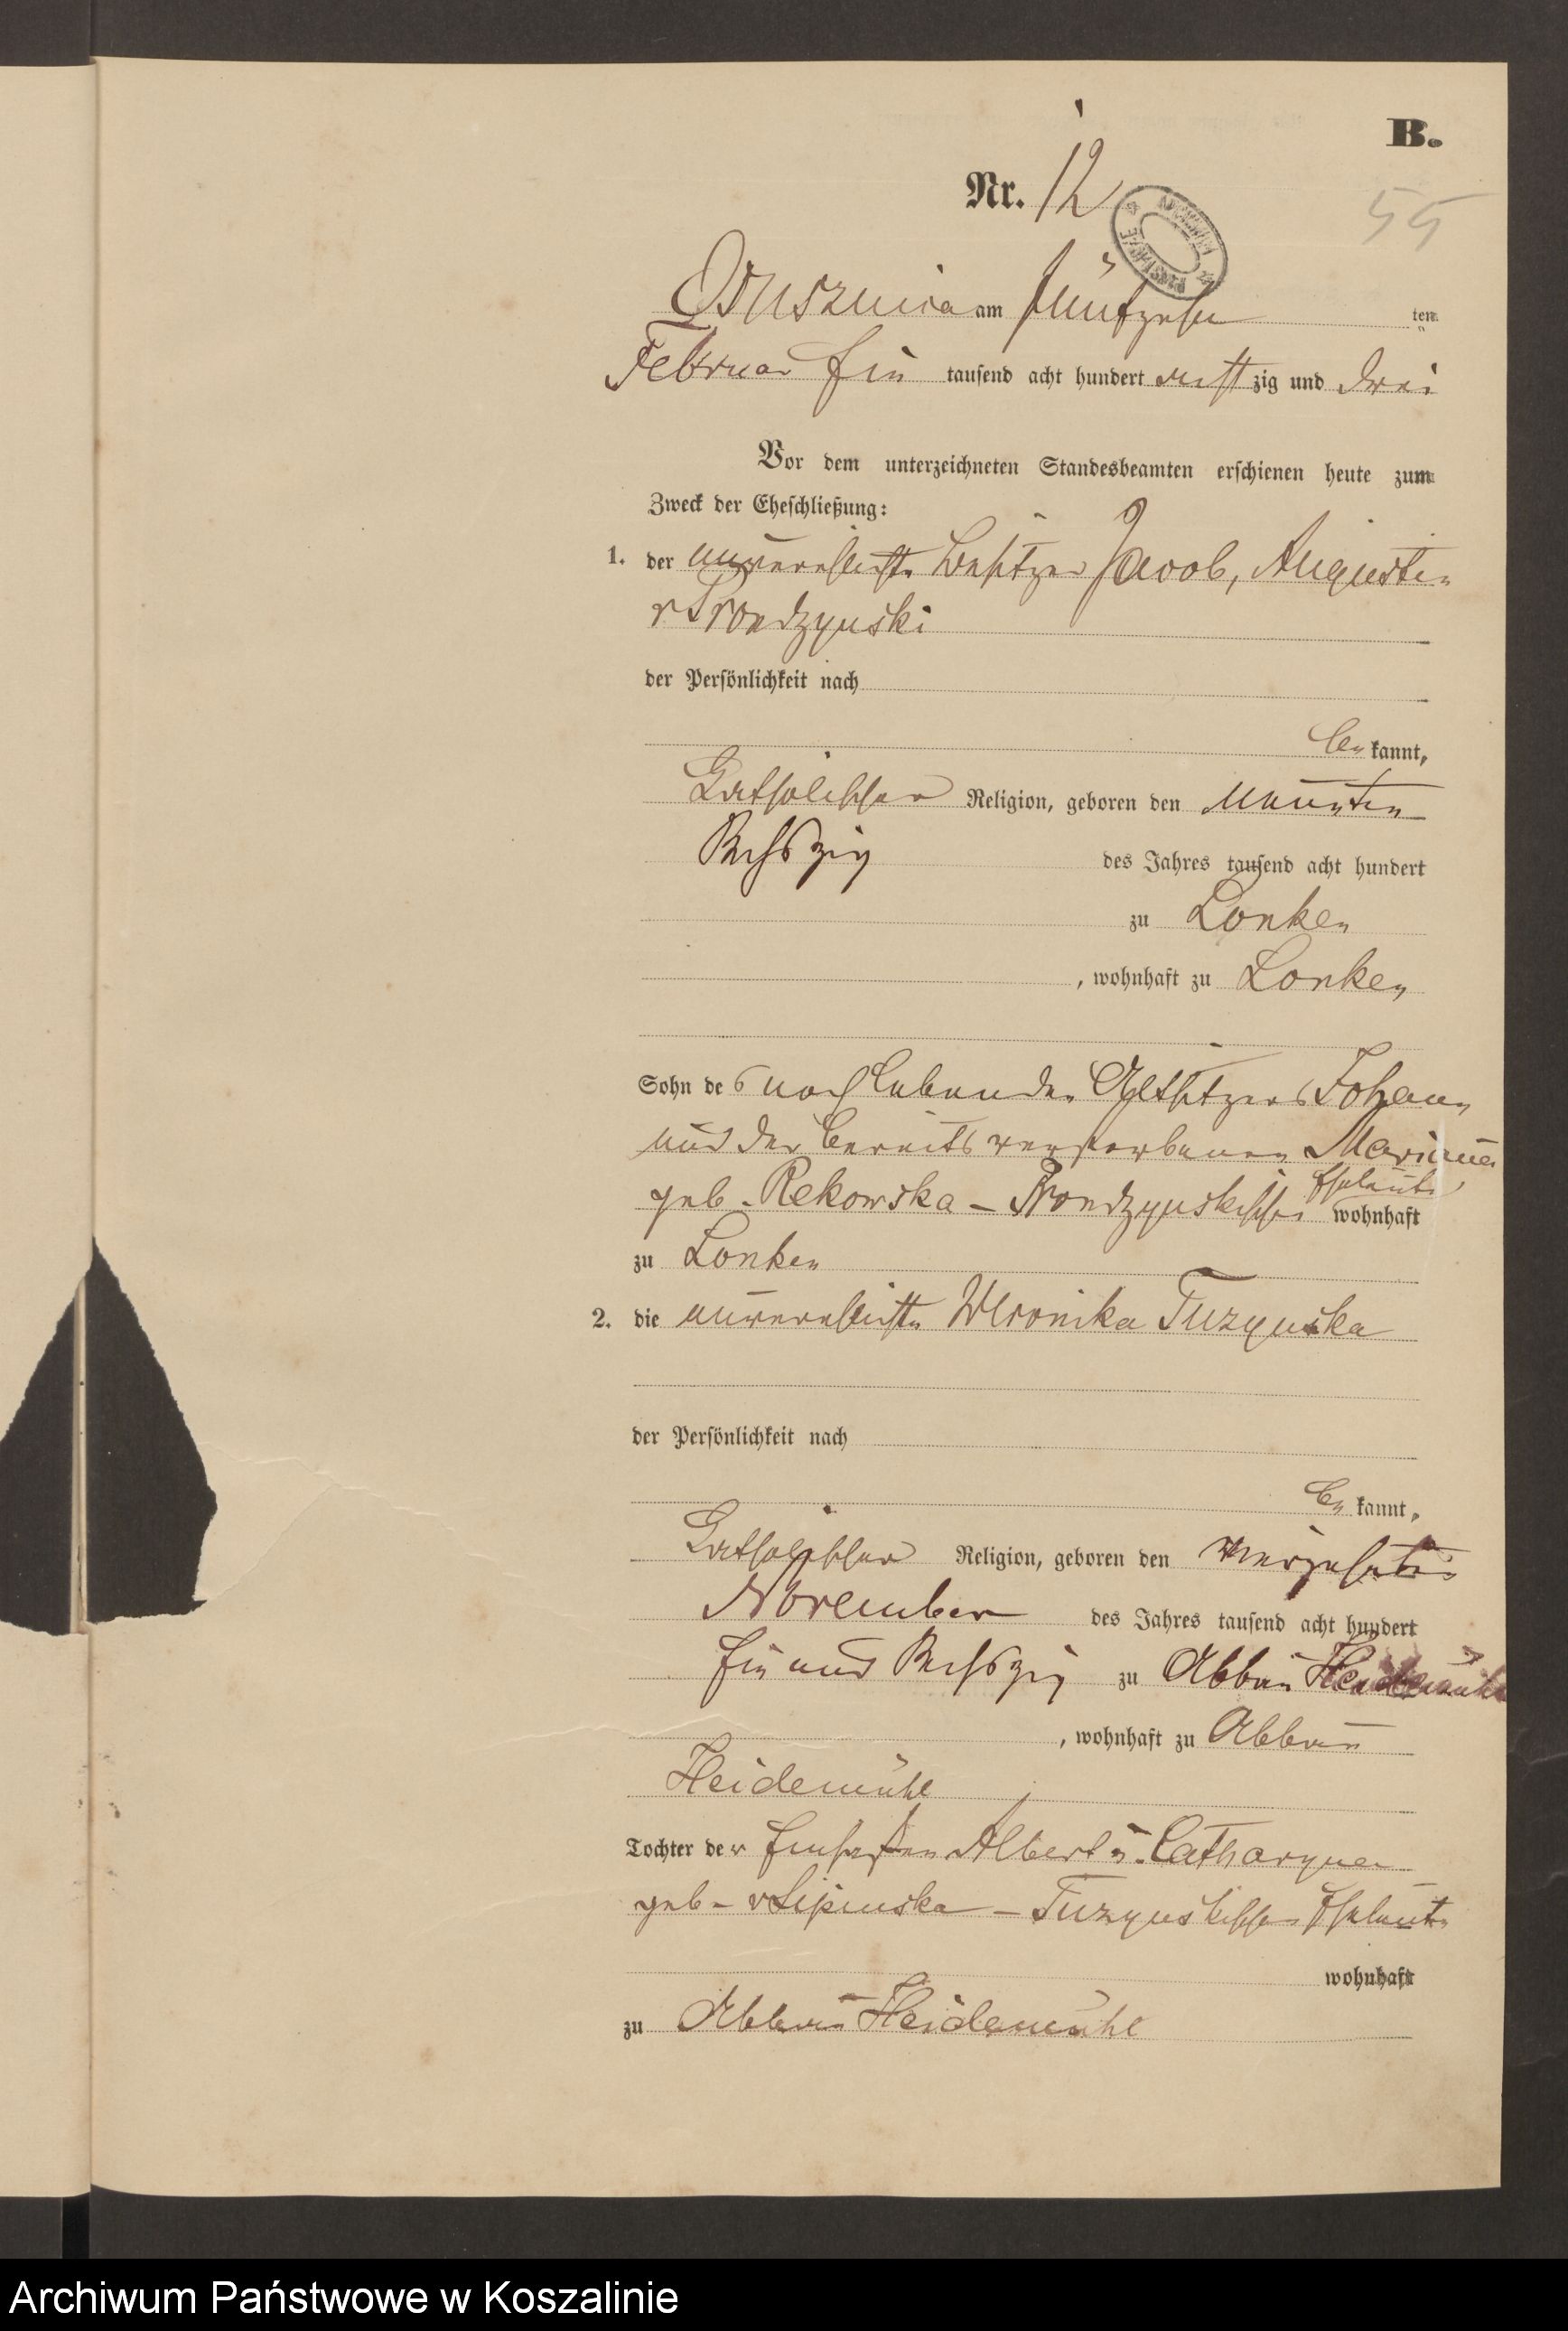 B.
Nr. 12
55
Osusznica am fünfzehn ten
Februar Ein tausend acht hundert acht zig und drei
Vor dem unterzeichneten Standesbeamten erschienen heute zum
Zweck der Eheschließung:
1. der unverehelichte Besitzer Jacob, Augustin
v Prondzynski
der Persönlichkeit nach
be kannt,
Katholischer Religion, geboren den neunten
des Jahres tausend acht hundert
Sechszig
zu Lonken
, wohnhaft zu Lonken
Sohn de s noch lebenden Altsitzers Johann
und der bereits verstorbenen Marianna
geb. Rekowska - Prondzynskischen Eheleute wohnhaft
zu Lonken
2. die unverehelichte Weronika Tuzynska
der Persönlichkeit nach
be kannt,
Katholischer Religion, geboren den vierzehnten
November des Jahres tausend acht hundert
Ein und Sechszig zu Abbau Heidemühl
, wohnhaft zu Abbau
Heidemühl
Tochter de r Einsassen Albert u. Catharyna
geb. v Lipinska - Tuzynskischen Eheleute
wohnhaft
zu Abbau Heidemühl
Archiwum Państwowe w Koszalinie